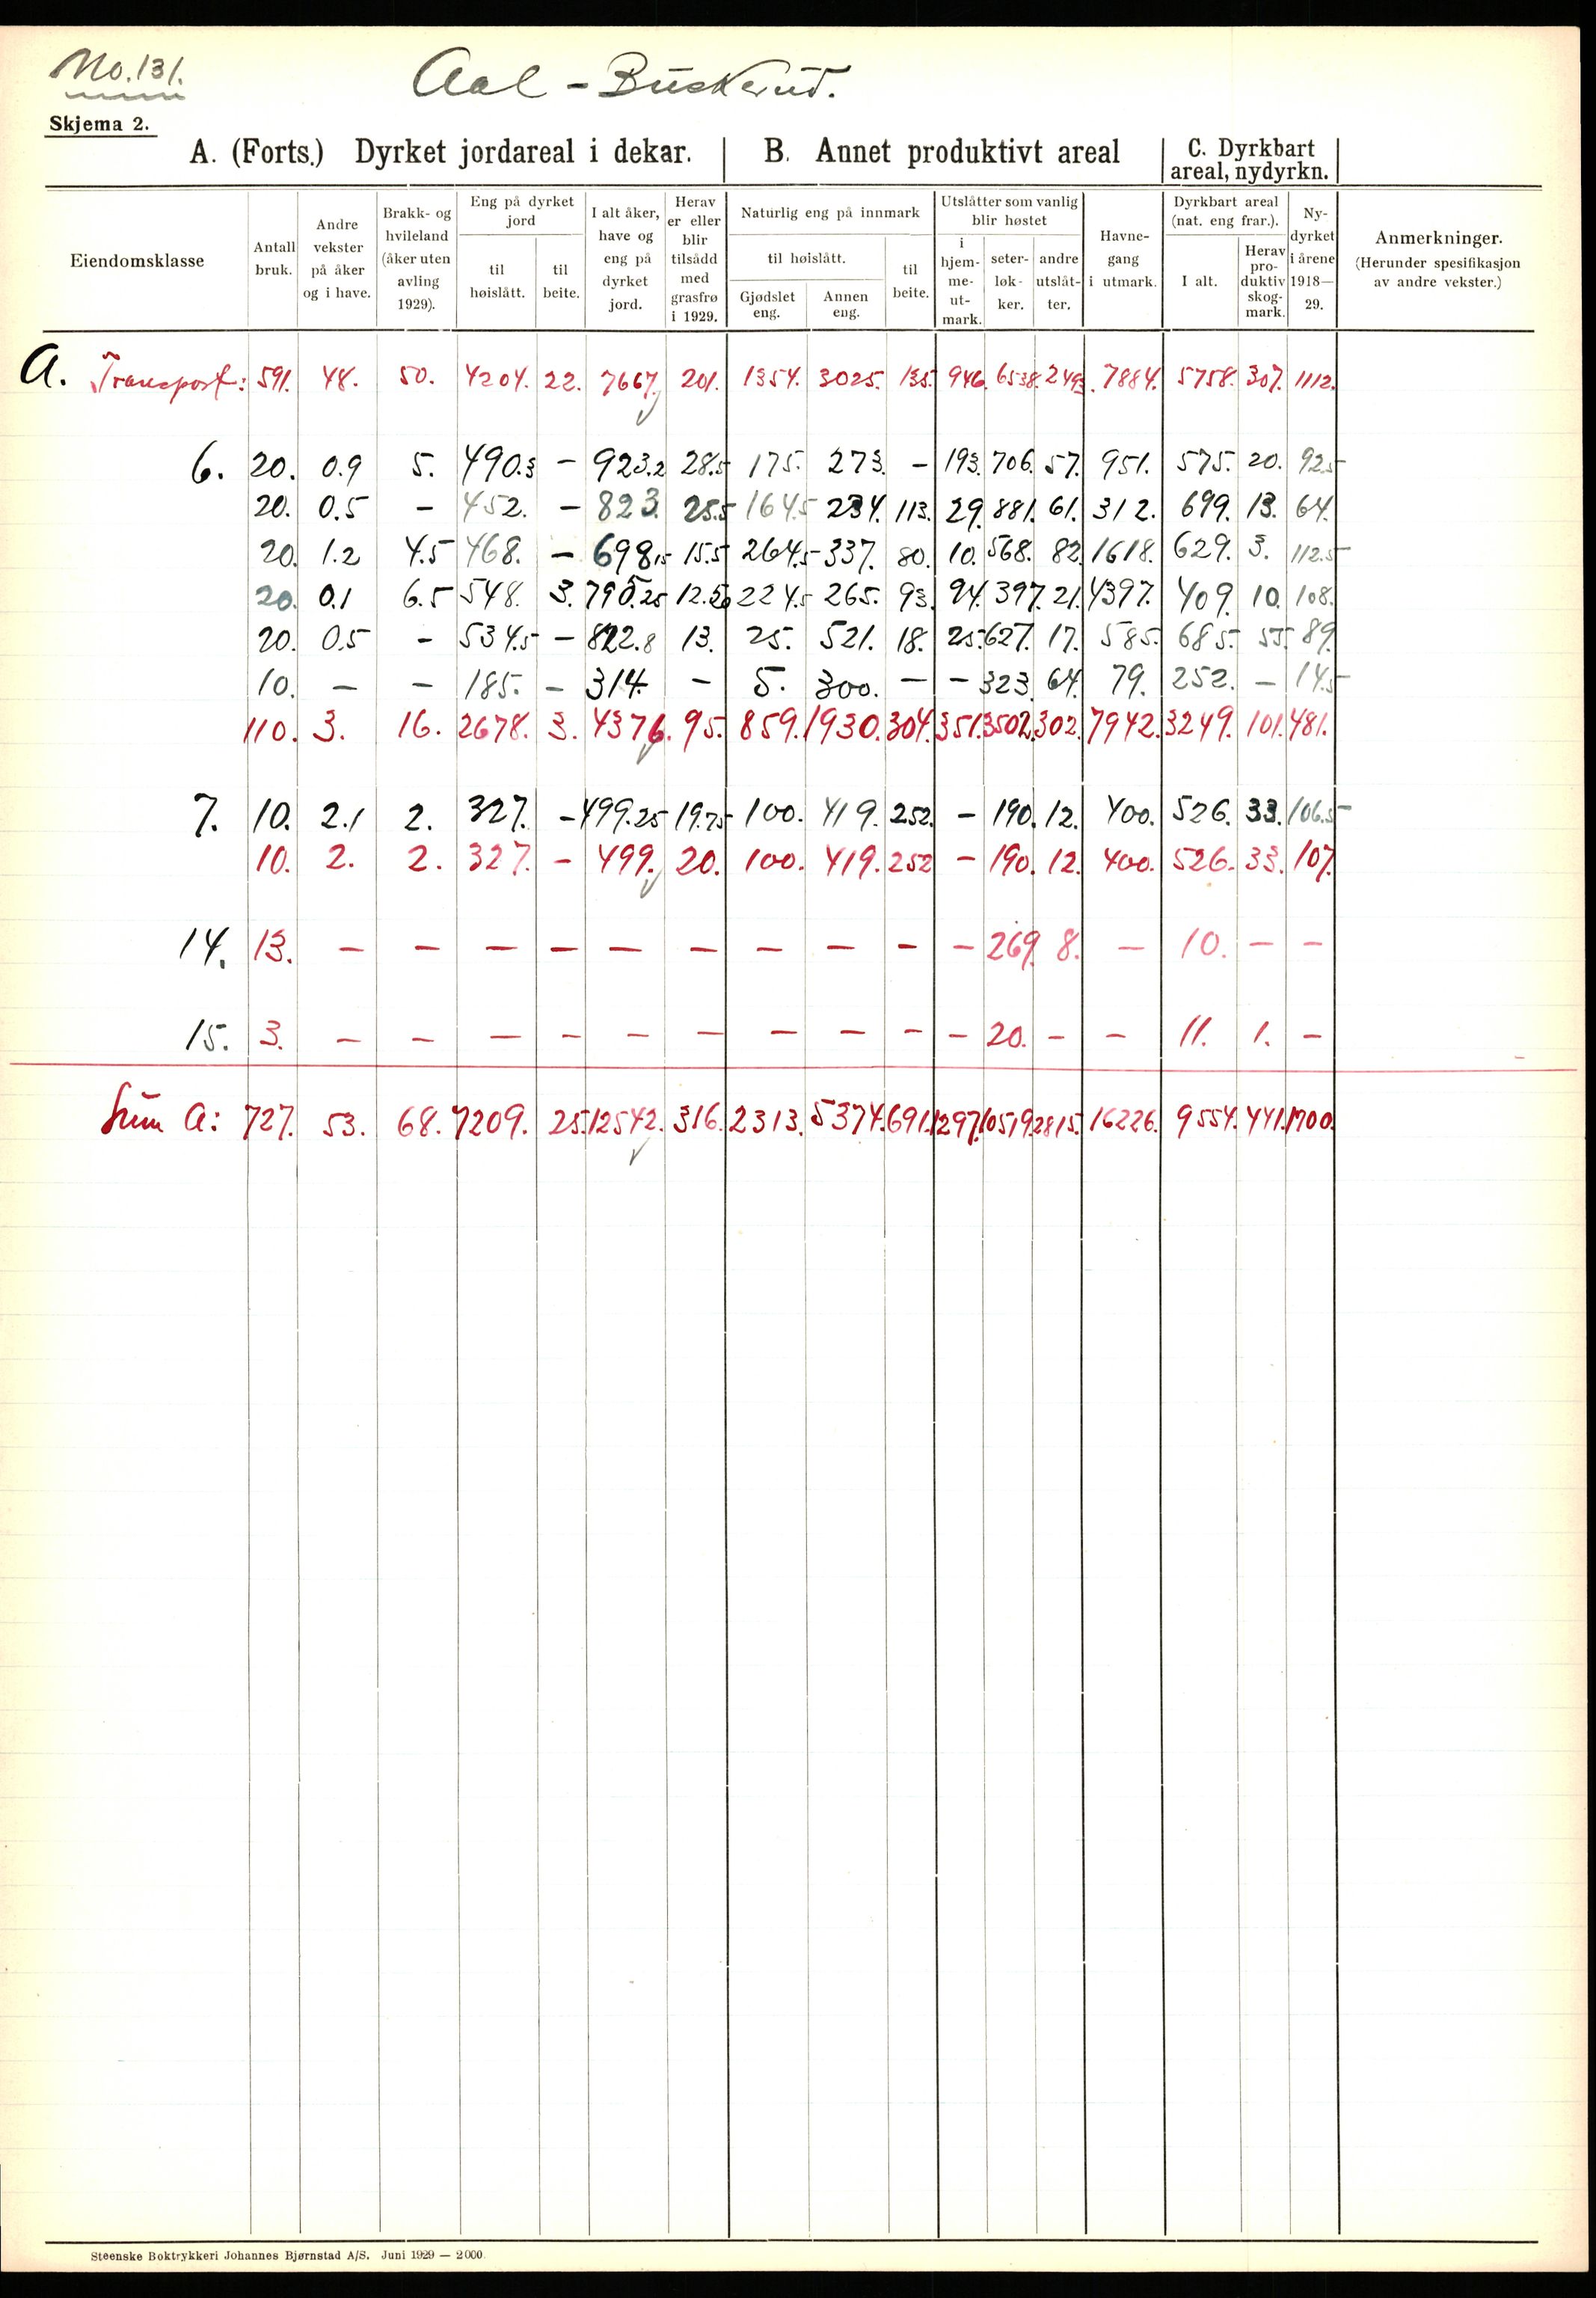 No. 131.
Aal - Buskerud.
Skjema 2.
A. (Forts.) Dyrket jordareal i dekar. B. Annet produktivt areal C. Dyrkbart areal, nydyrkn.
Eiendomsklasse
Antall bruk.
Andre vekster på åker og i have.
Brakk- og hvileland (åker uten avling 1929).
Eng på dyrket jord
til høislått.
til beite.
I alt åker, have og eng på dyrket jord.
Herav er eller blir tilsådd med grasfrø i 1929.
Naturlig eng på innmark
til høislått.
Gjødslet eng.
Annen eng.
til beite.
Utslåtter som vanlig blir høstet
i hjem- me- ut- mark.
seter- løk- ker.
andre utslåt- ter.
Havne- gang i utmark.
Dyrkbart areal (nat. eng frar.).
I alt.
Herav pro- duktiv skog- mark.
Ny- dyrket i årene 1918— 29.
Anmerkninger. (Herunder spesifikasjon av andre vekster.)
A. Transport: 591. 48. 50. 4204. 22. 7667. 201. 1354. 3025. 135. 946. 6538. 2493. 7884. 5758. 307. 1112.
6. 20. 0.9 5. 490.3 - 923.2 28.5 175. 273. - 193. 706. 57. 951. 575. 20. 92.5
20. 0.5 - 452. - 823. 25.5 164.5 234. 113. 29. 881. 61. 312. 699. 13. 64.
20. 1.2 4.5 468. - 698.15 15.5 264.5 337. 80. 10. 568. 82. 1618. 629. 3. 112.5
20. 0.1 6.5 548. 3. 795.25 12.50 224.5 265. 93. 94. 397. 21. 4397. 409. 10. 108.
20. 0.5 - 534.5 - 822.8 13. 25. 521. 18. 25. 627. 17. 585. 685. 55. 89.
10. - - 185. - 314. - 5. 300. - - 323. 64. 79. 252. - 14.5
110. 3. 16. 2678. 3. 4376. 95. 859. 1930. 304. 351. 3502. 302. 7942. 3249. 101. 481.
7. 10. 2.1 2. 327. - 499.25 19.75 100. 419. 252. - 190. 12. 400. 526. 33. 106.5
10. 2. 2. 327. - 499. 20. 100. 419. 252 - 190. 12. 400. 526. 33. 107.
14. 13. - - - - - - - - - - 269. 8. - 10. - -
15. 3. - - - - - - - - - - 20. - - 11. 1. -
Sum A: 727. 53. 68. 7209. 25. 12542. 316. 2313. 5374. 691. 1297. 10519. 2815. 16226. 9554. 441. 1700.
Steenske Boktrykkeri Johannes Bjørnstad A/S. Juni 1929 — 2000.